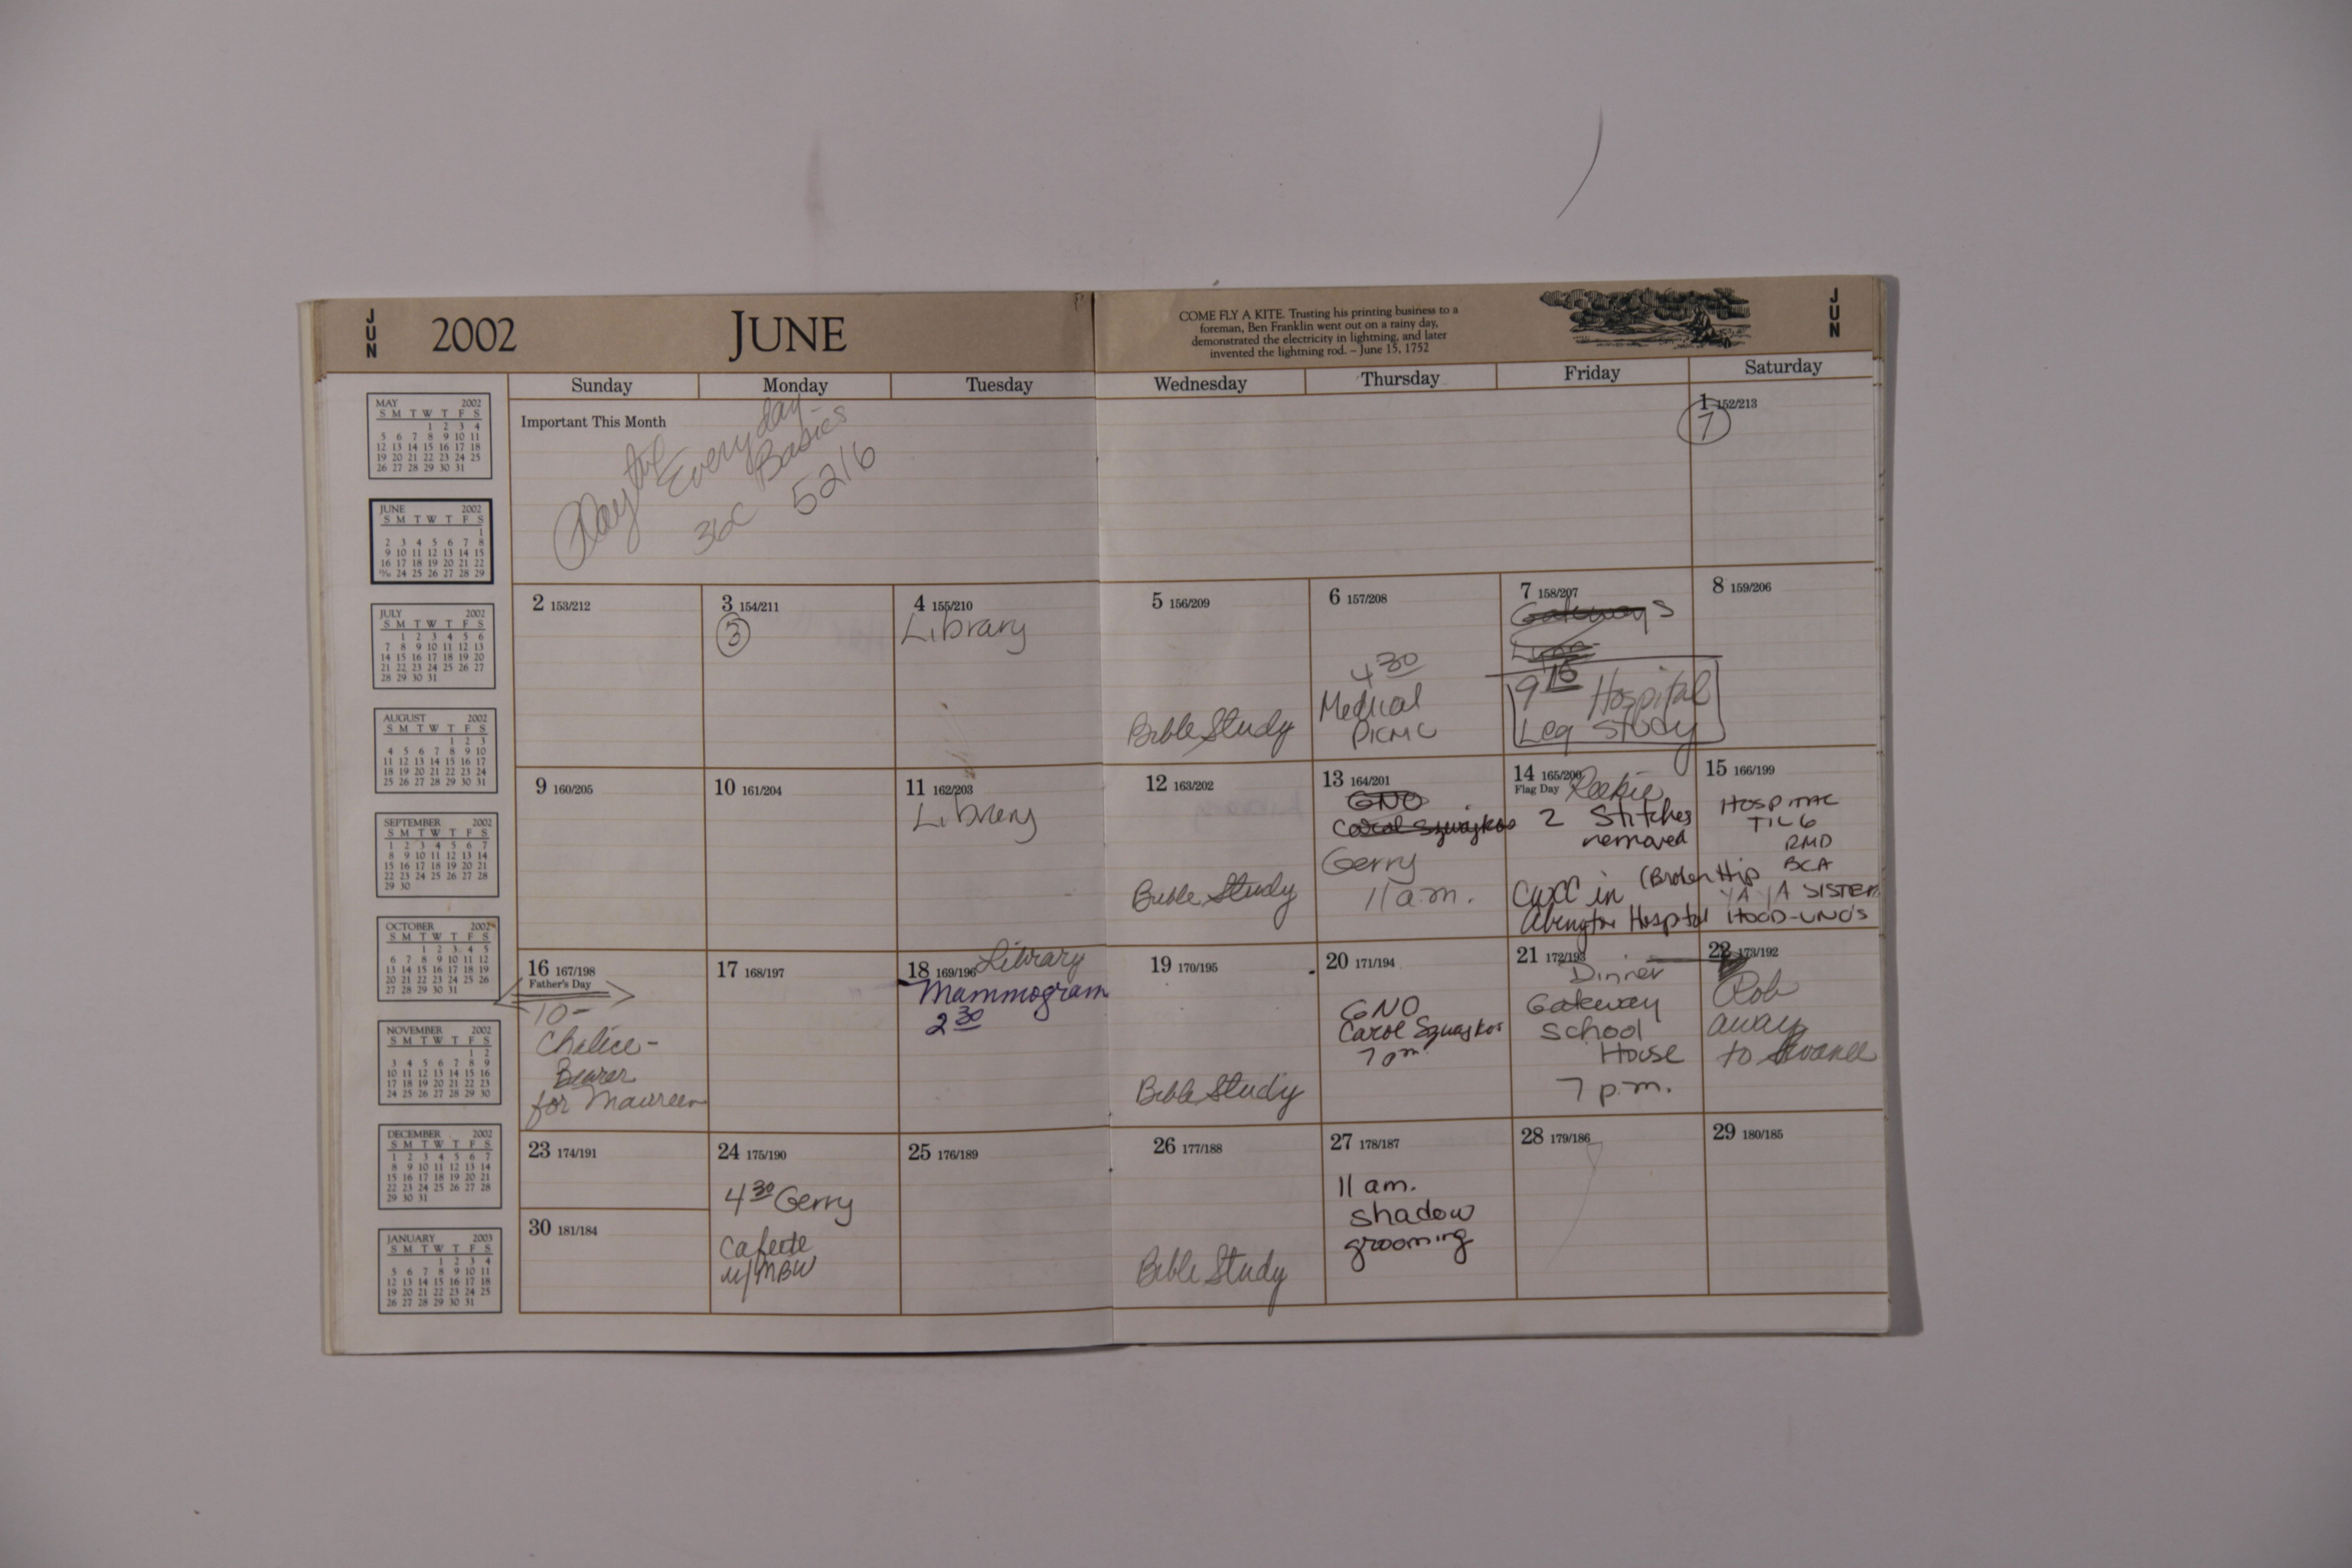 JUN
2002
JUNE
COME FLY A KITE. Trusting his printing business to a
foreman, Ben Franklin went out on a rainy day,
demonstrated the electricity in lightning, and later
invented the lightning rod. – June 15, 1752
JUN
Sunday Monday Tuesday Wednesday Thursday Friday Saturday
MAY 2002
S M T W T F S
1 2 3 4
5 6 7 8 9 10 11
12 13 14 15 16 17 18
19 20 21 22 23 24 25
26 27 28 29 30 31
JUNE 2002
S M T W T F S
1
2 3 4 5 6 7 8
9 10 11 12 13 14 15
16 17 18 19 20 21 22
23/30 24 25 26 27 28 29
JULY 2002
S M T W T F S
1 2 3 4 5 6
7 8 9 10 11 12 13
14 15 16 17 18 19 20
21 22 23 24 25 26 27
28 29 30 31
AUGUST 2002
S M T W T F S
1 2 3
4 5 6 7 8 9 10
11 12 13 14 15 16 17
18 19 20 21 22 23 24
25 26 27 28 29 30 31
SEPTEMBER 2002
S M T W T F S
1 2 3 4 5 6 7
8 9 10 11 12 13 14
15 16 17 18 19 20 21
22 23 24 25 26 27 28
29 30
OCTOBER 2002
S M T W T F S
1 2 3 4 5
6 7 8 9 10 11 12
13 14 15 16 17 18 19
20 21 22 23 24 25 26
27 28 29 30 31
NOVEMBER 2002
S M T W T F S
1 2
3 4 5 6 7 8 9
10 11 12 13 14 15 16
17 18 19 20 21 22 23
24 25 26 27 28 29 30
DECEMBER 2002
S M T W T F S
1 2 3 4 5 6 7
8 9 10 11 12 13 14
15 16 17 18 19 20 21
22 23 24 25 26 27 28
29 30 31
JANUARY 2003
S M T W T F S
1 2 3 4
5 6 7 8 9 10 11
12 13 14 15 16 17 18
19 20 21 22 23 24 25
26 27 28 29 30 31
Important This Month
Playtex
Everyday
Basics
36C 5216
1 152/213
7
2 153/212
3 154/211
3
4 155/210
Library
5 156/209
Bible Study
6 157/208
4 30
Medical
7 158/207
Gateway's
9 15 Hospital
Leg Study
8 159/206
9 160/205
10 161/204
11 162/203
Library
12 163/202
Bible Study
13 164/201
GNO
Carol Szwajkos
Gerry
11 a.m.
14 165/200
Flag Day
2 Stitches
removed
(Broken Hip
in
Abington Hospital
15 166/199
HOSPITAL
TIL 6
RMD
BCA
YA YA SISTER
HOOD-UNO'S
16 167/198
Father's Day
10-
Chalice-
Bearer
for Maureen
17 168/197
18 169/196
Library
Mammogram
2 30
19 170/195
Bible Study
20 171/194
GNO
Carol Szwajkos
7 pm
21 172/193
Dinner
Gateway
School
House
7 p.m.
22 173/192
Rob
away
to
23 174/191
24 175/190
4 30 Gerry
w/MBW
25 176/189
26 177/188
Bible Study
27 178/187
11 am.
shadow
grooming
28 179/186
29 180/185
30 181/184